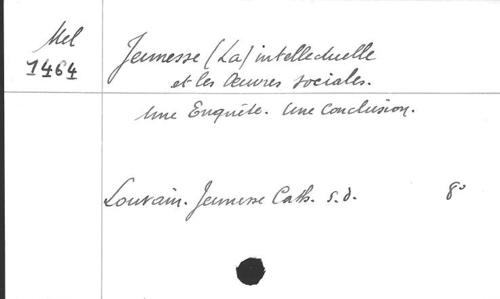 Mel
1464
Jeunesse (La) intellectuelle
et les Œuvres sociales.
Une Enquête. Une Conclusion.
Louvain. Jeunesse Cath. s.d. 8°